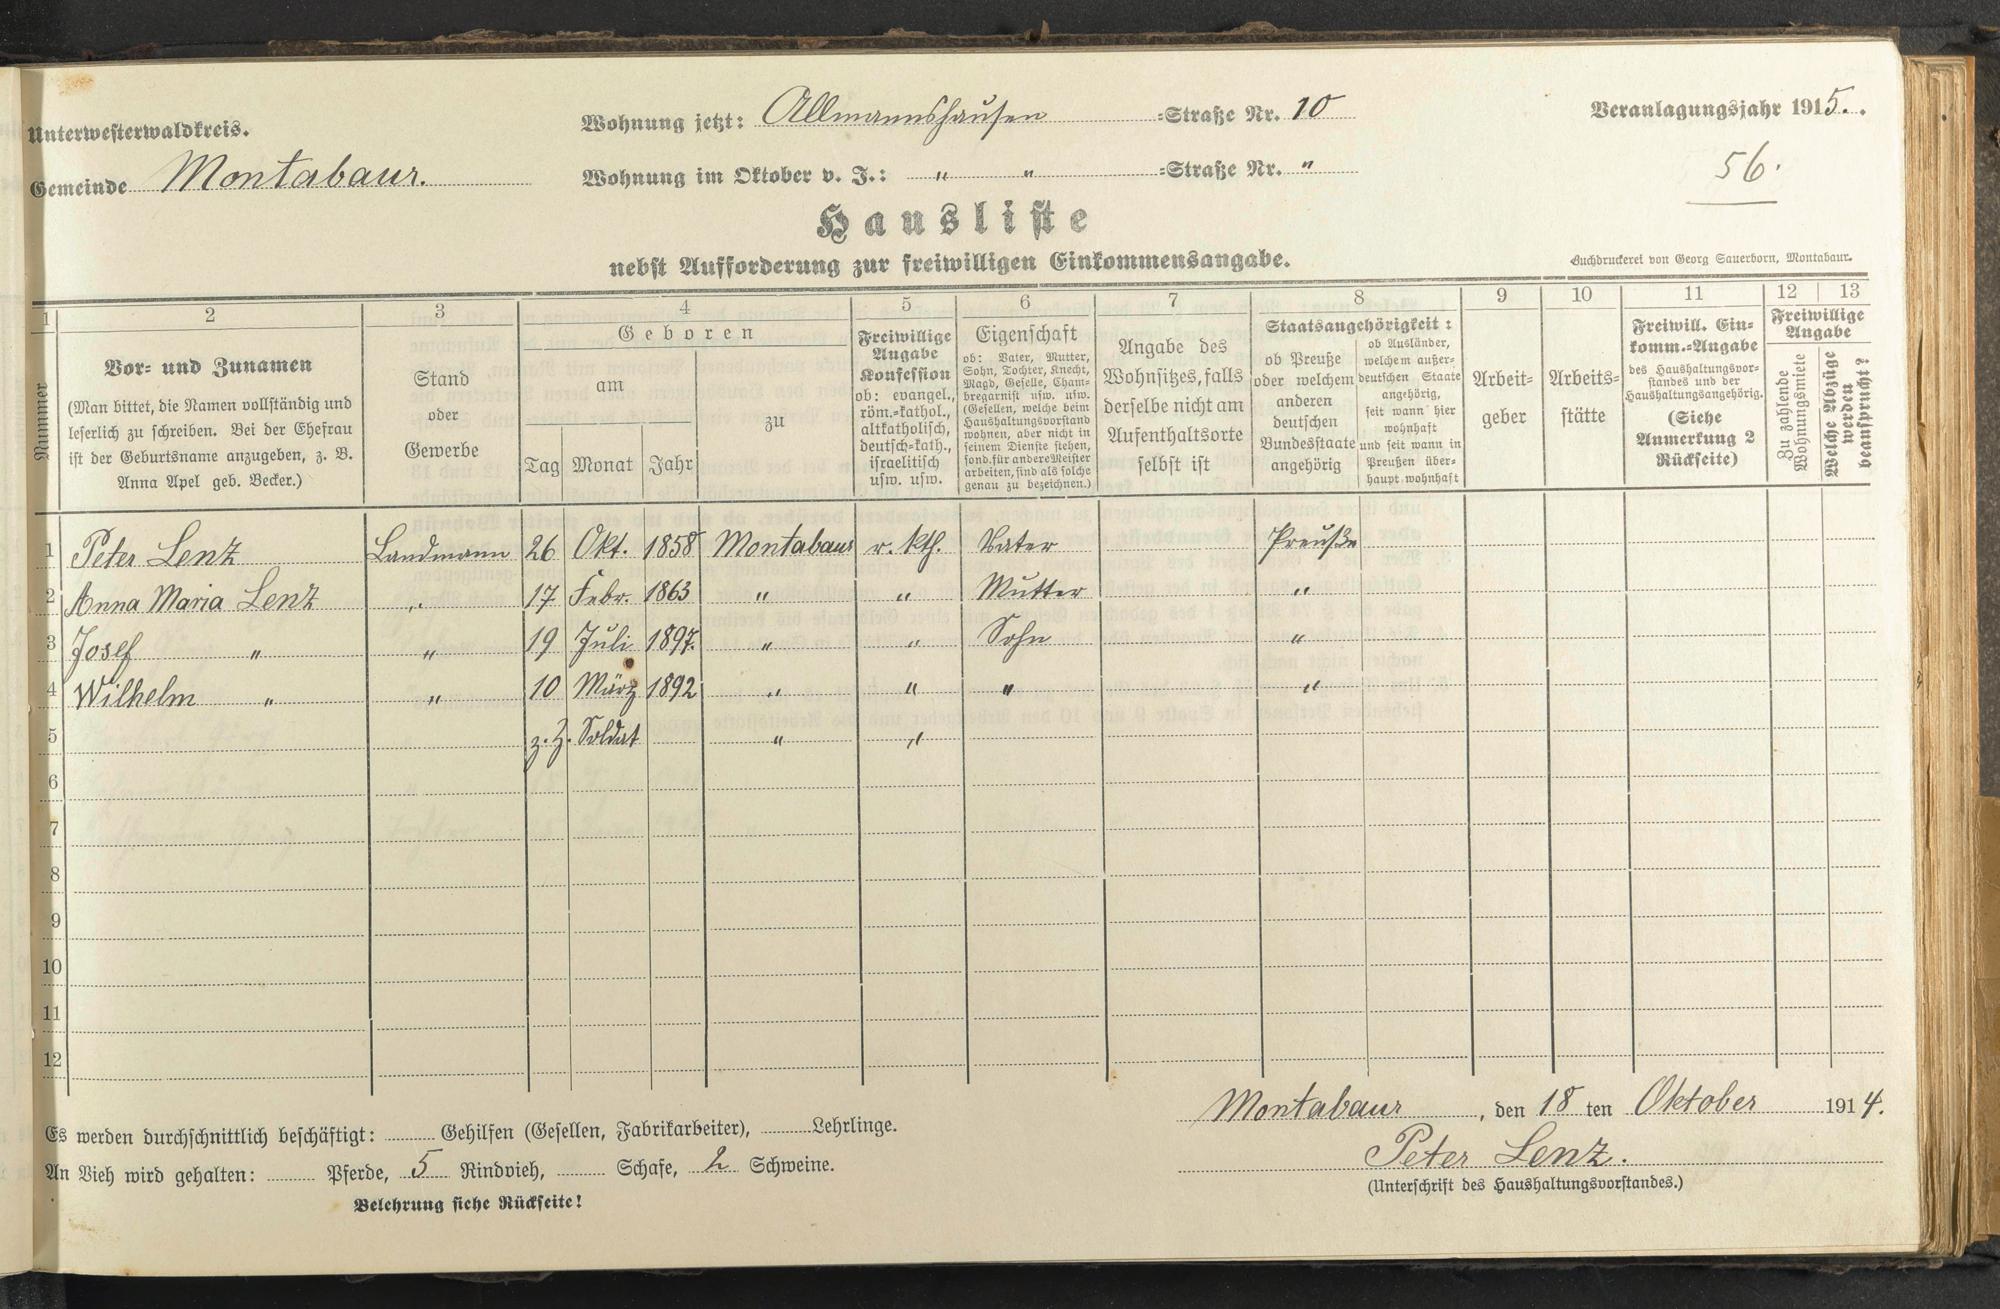 Unterwesterwaldkreis.
Gemeinde Montabaur.
Wohnung jetzt: Allmannshausen =Straße Nr. 10
Wohnung im Oktober v. J.: " " =Straße Nr. "
Veranlagungsjahr 1915.
56.
Hausliste
nebst Aufforderung zur freiwilligen Einkommensangabe.
Buchdruckerei von Georg Sauerborn, Montabaur.
1 2 3 4 5 6 7 8 9 10 11 12 13
Nummer
Vor- und Zunamen
(Man bittet, die Namen vollständig und
leserlich zu schreiben. Bei der Ehefrau
ist der Geburtsname anzugeben, z. B.
Anna Apel geb. Becker.)
Stand
oder
Gewerbe
Geboren
am
Tag Monat Jahr
zu
Freiwillige
Angabe
Konfession
ob: evangel.,
röm.=kathol.,
altkatholisch,
deutsch=kath.,
israelitisch
usw. usw.
Eigenschaft
ob: Vater, Mutter,
Sohn, Tochter, Knecht,
Magd, Geselle, Cham=
bregarnist usw. usw.
(Gesellen, welche beim
Haushaltungsvorstand
wohnen, aber nicht in
seinem Dienste stehen,
sond. für andere Meister
arbeiten, sind als solche
genau zu bezeichnen.)
Angabe des
Wohnsitzes, falls
derselbe nicht am
Aufenthaltsorte
selbst ist
Staatsangehörigkeit:
ob Preuße
oder welchem
anderen
deutschen
Bundesstaate
angehörig
ob Ausländer,
welchem außer=
deutschen Staate
angehörig,
seit wann hier
wohnhaft
und seit wann in
Preußen über=
haupt wohnhaft
Arbeit=
geber
Arbeits=
stätte
Freiwill. Ein=
komm.=Angabe
des Haushaltungsvor=
standes und der
Haushaltungsangehörig.
(Siehe
Anmerkung 2
Rückseite)
Freiwillige
Angabe
Zu zahlende
Wohnungsmiete
Welche Abzüge
werden
beansprucht?
1 Peter Lenz Landmann 26 Okt. 1858 Montabaur r. kth. Vater Preuße
2 Anna Maria Lenz " 17 Febr. 1863 " " Mutter "
3 Josef " " 19 Juli 1897. " " Sohn "
4 Wilhelm " " 10 März 1892 " " " "
5 z. Z. Soldat " "
6
7
8
9
10
11
12
Es werden durchschnittlich beschäftigt: Gehilfen (Gesellen, Fabrikarbeiter), Lehrlinge.
An Vieh wird gehalten: Pferde, 5 Rindvieh, Schafe, 2 Schweine.
Belehrung siehe Rückseite!
Montabaur, den 18 ten Oktober 1914.
Peter Lenz.
(Unterschrift des Haushaltungsvorstandes.)